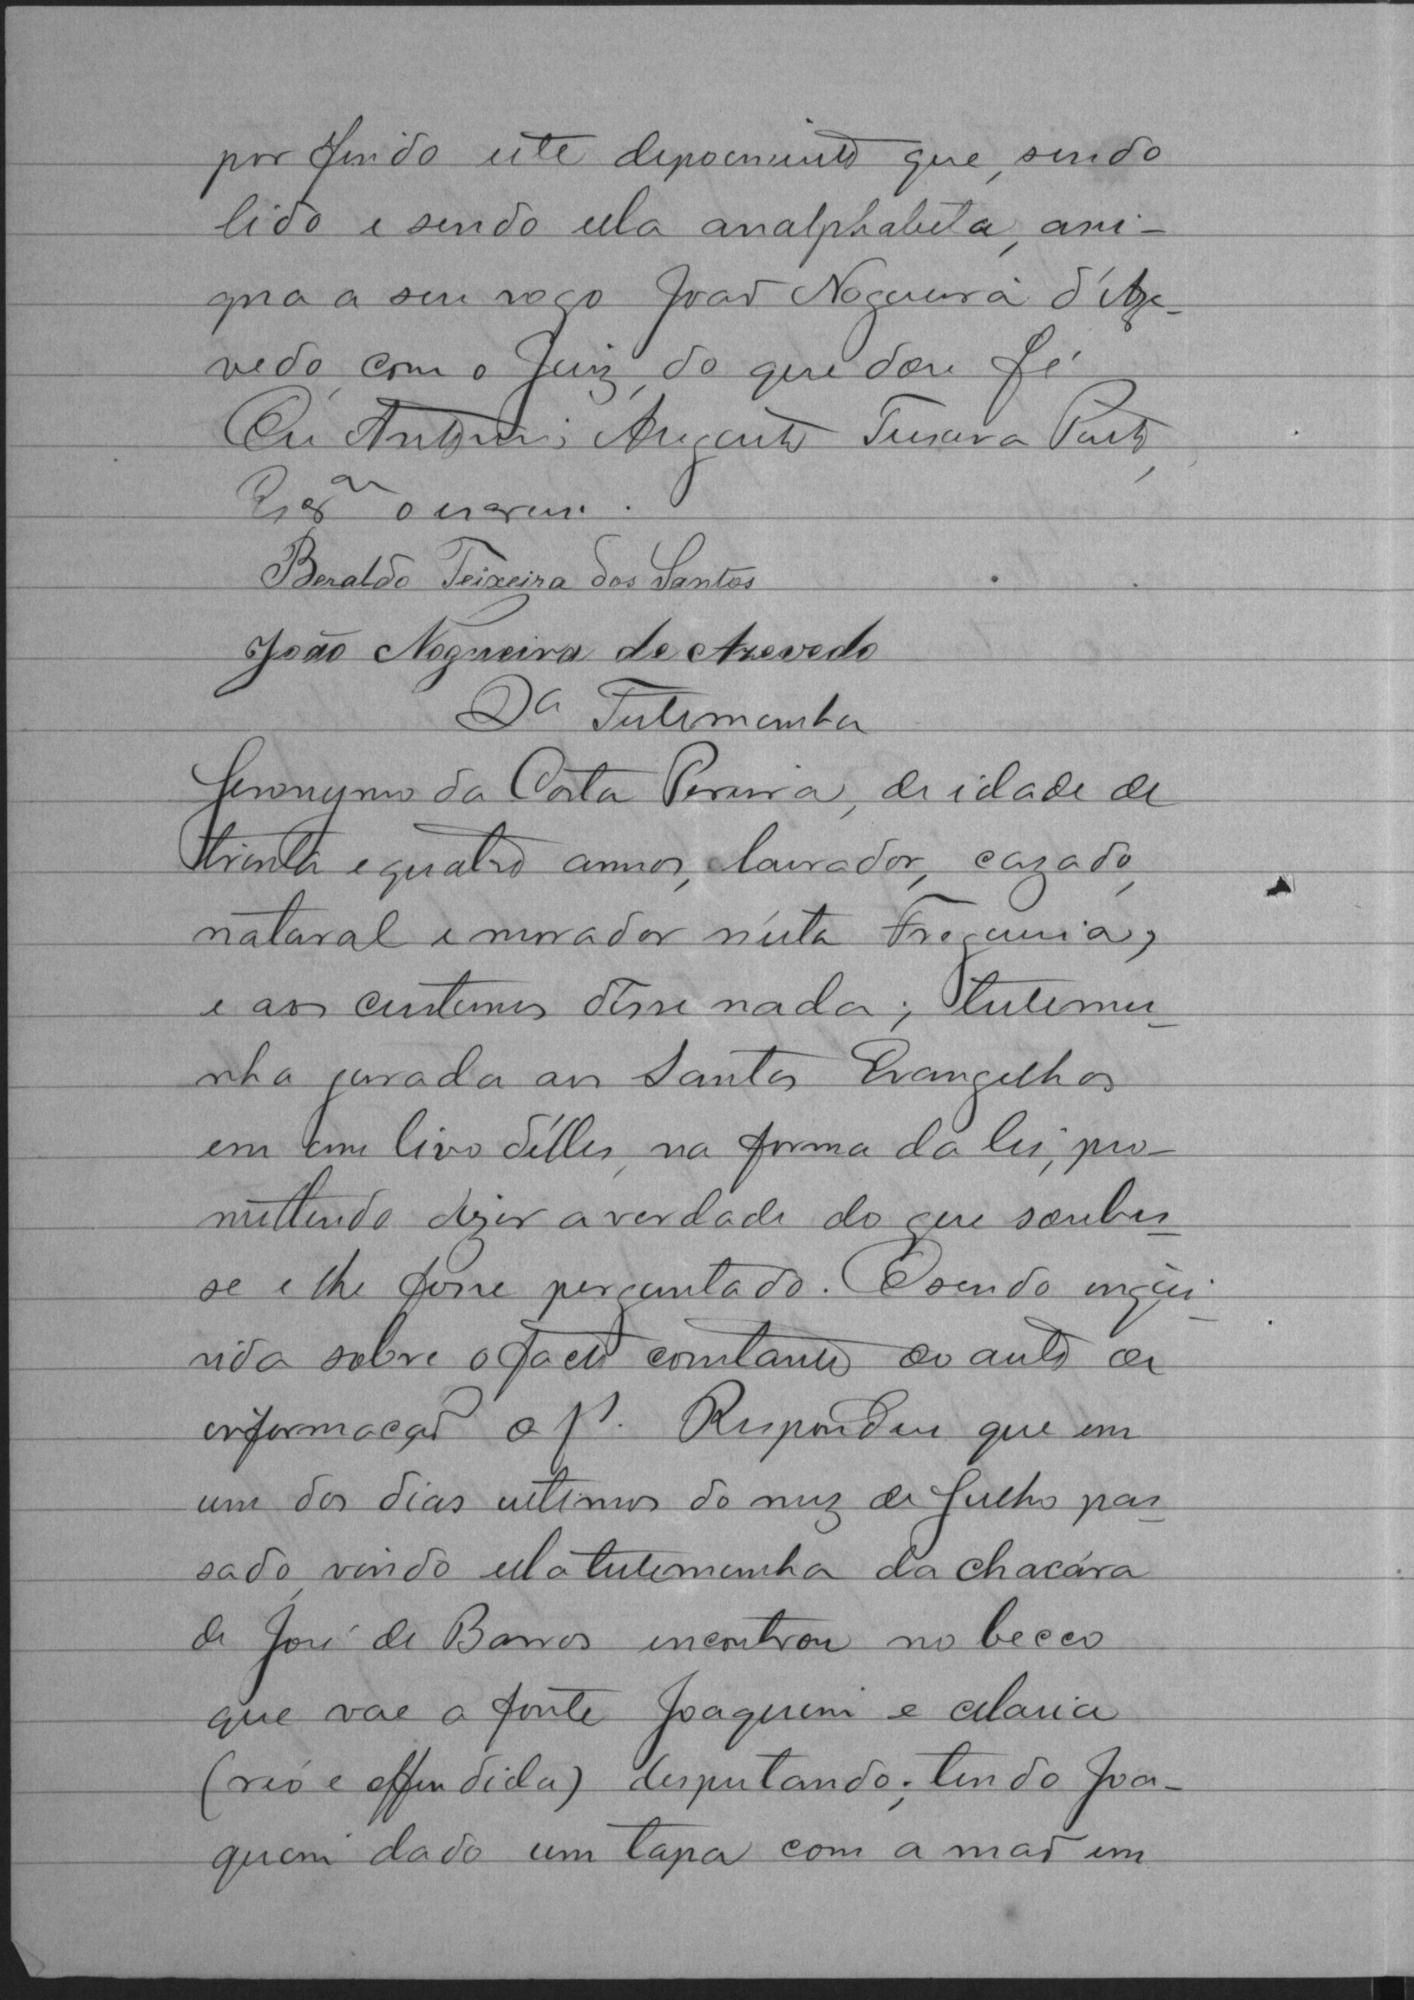 por findo este depoimento que, sendo
lido e sendo ella analphabeta, assi-
gna a seu rogo João Nogueira d'Aze-
vedo, com o Juiz, do que dou fé
Eu Antonio Augusto Teixeira Porto,
Escram o escrevi.
Beraldo Teixeira dos Santos
João Nogueira de Azevedo
2a Testemunha
Jeronymo da Costa Pereira, de idade de
trinta e quatro annos, lavrador, cazado,
natural e morador n'esta Freguesia,
e aos custumes disse nada; testemu-
nha jurada aos Santos Evangelhos
em um livro d'elles, na forma da lei, pro-
mettendo dizer a verdade do que soubes-
se e lhe fosse perguntado. E sendo inqui-
rida sobre o facto constante do auto de
informação a f. Respondeu que em
um dos dias ultimos do mez de Julho pas-
sado, vindo ella testemunha da chacára
de José de Barros encontrou no becco
que vae a fonte Joaquim e Maria
(reó e offendida) desputando; tendo Joa-
quim dado um tapa com a mão em